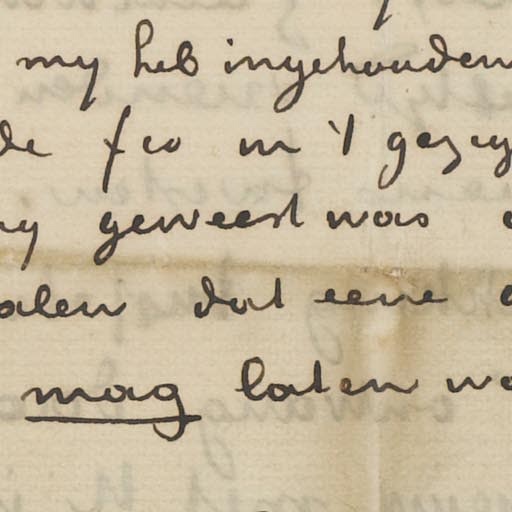 my heb ingehouden
de fio in 't gezeg
ny geweest was
alen dat eene
mag laten wa